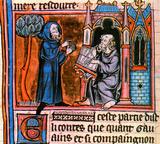 mere ressourt.
Ceste partie dist
li contes que quant Gau
ains et si compaignon